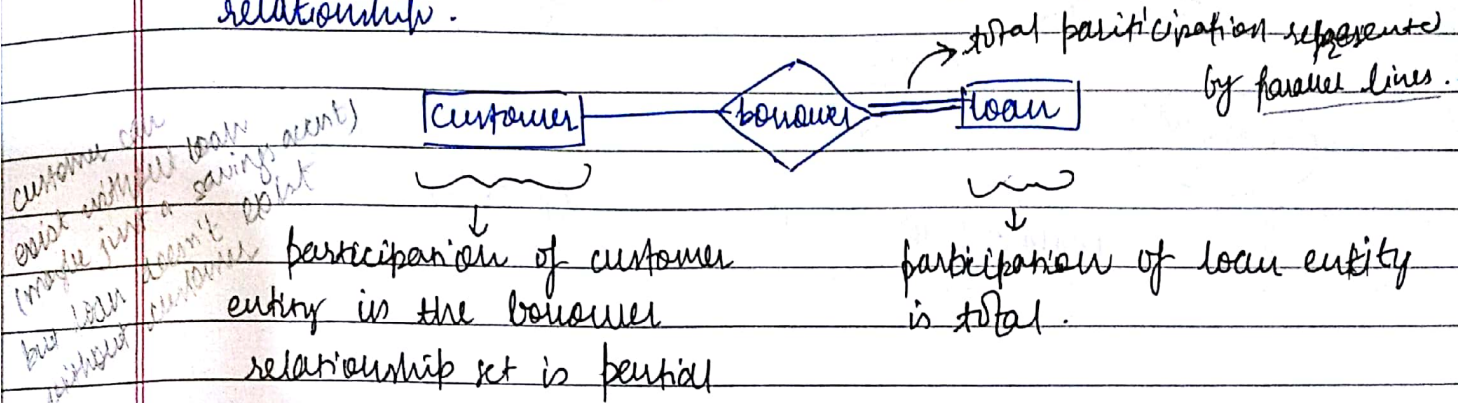 relationship.
total pariticipation represented
by parallel lines.
customer
borrower
loan
customer can
exist without loan
(maybe just a savings accnt)
but loan doesn't exist
without customer
participation of customer
entity in the borrower
relationship set is partial
participation of loan entity
is total.